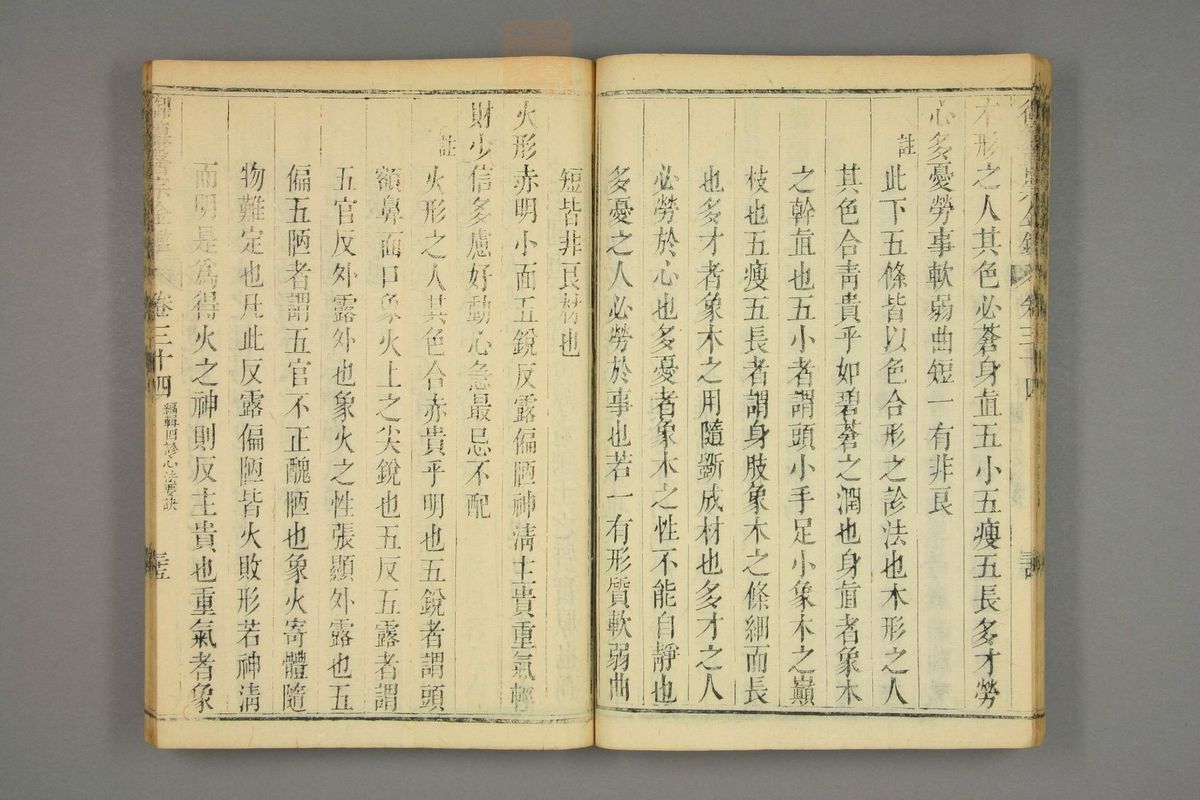 木形之人其色必蒼身直五小五瘦五長多才勞
心多憂勞事軟弱曲短一有非良
註
此下五條皆以色合形之診法也木形之人
其色合青貴乎如碧蒼之潤也身直者象木
之幹直也五小者謂頭小手足小象木之巔
枝也五瘦五長者謂身肢象木之條細而長
也多才者象木之用隨斵成材也多才之人
必勞於心也多憂者象木之性不能自靜也
多憂之人必勞於事也若一有形質軟弱曲
短皆非良材也
火形赤明小面五銳反露偏陋神清主貴重氣輕
財少信多慮好動心急最忌不配
註
火形之人其色合赤貴乎明也五銳者謂頭
額鼻面口象火上之尖銳也五反五露者謂
五官反外露外也象火之性張顯外露也五
偏五陋者謂五官不正醜陋也象火寄體隨
物難定也凡此反露偏陋皆火敗形若神清
而明是為得火之神則反主貴也重氣者象
卷三十四
編輯四診心法要訣